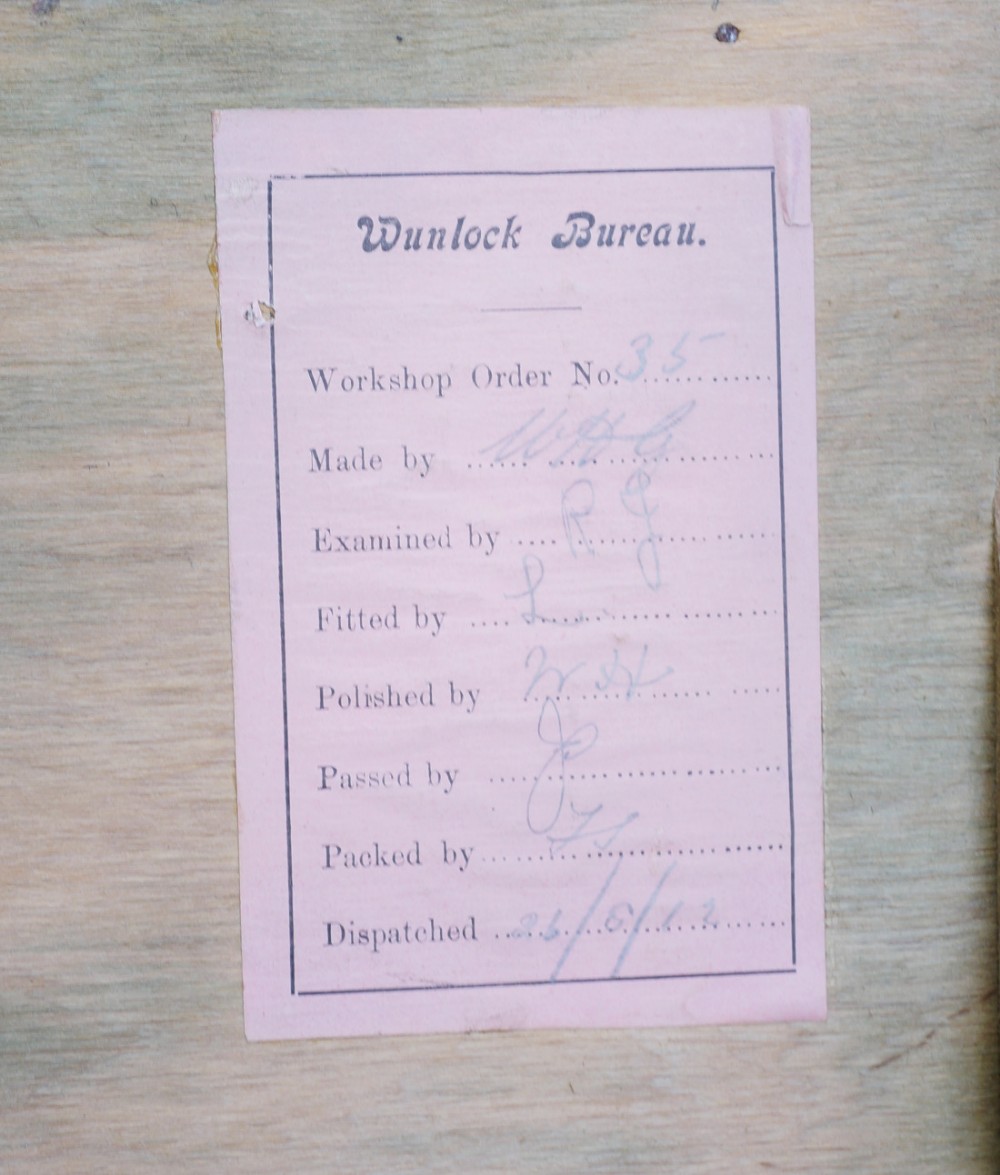 Wunlock Bureau.
Workshop Order No. 35
Made by W H G
Examined by R J
Fitted by L
Polished by W H
Passed by
Packed by
Dispatched 26/8/12